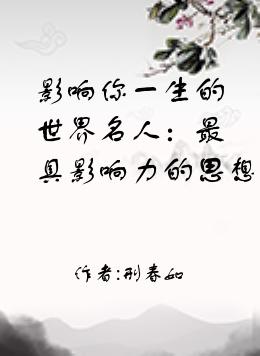 影响你一生的
世界名人：最
具影响力的思想
作者:刑春如